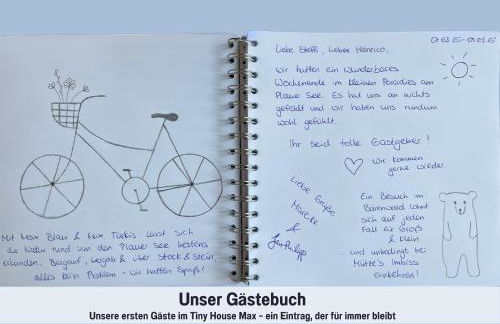 Mit Max Blau & Max Türkis lässt sich
die Natur rund um den Plauer See bestens
erkunden. Bergauf, bergab & über Stock & Stein,
alles kein Problem - wir hatten Spaß!
Liebe Steffi, lieber Henrico,
wir hatten ein wunderbares
Wochenende im kleinen Paradies am
Plauer See. Es hat uns an nichts
gefehlt und wir haben uns rundum
wohl gefühlt.
Ihr seid tolle Gastgeber!
Wir kommen
gerne wieder.
Liebe Grüße
Mareike
&
Jan-Philipp
Ein Besuch im
Bärenwald lohnt
sich auf jeden
Fall für Groß
& Klein
... und unbedingt bei
Mütze's Imbiss
einkehren!
Unser Gästebuch
Unsere ersten Gäste im Tiny House Max – ein Eintrag, der für immer bleibt